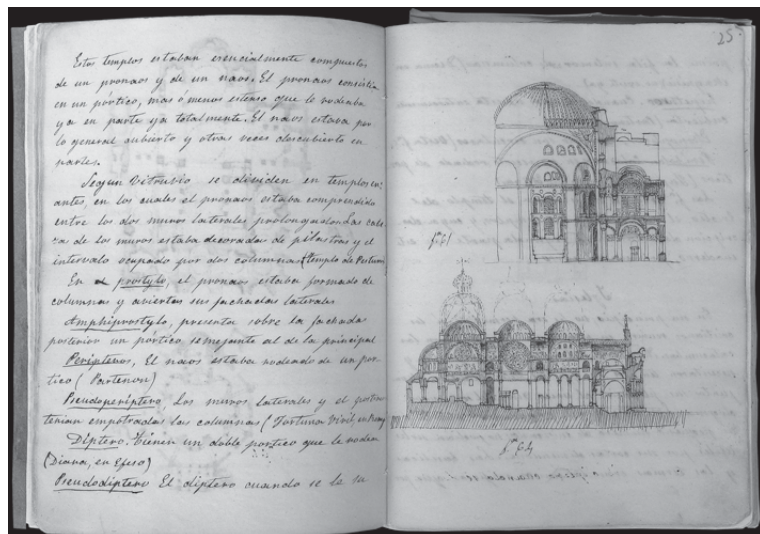 Estos templos estaban esencialmente compuestos
de un pronaos y de un naos. El pronaos consistia
en un pórtico, mas ó menos estenso que le rodeaba
ya en parte ya totalmente. El naos estava por
lo general cubierto y otras veces descubierto en
partes.
Segun Vitrubio se dividen en templos en:
antes, en los cuales el pronaos estaba comprendido
entre los dos muros laterales prolongados. Las cabe-
za de los muros estaba decorada de pilastras y el
intervalo ocupado por dos columnas (templo de Pestum)
En prostylo, el pronaos estaba formado de
columnas y abiertas sus fachadas laterales
Amphiprostylo, presenta sobre la fachada
posterior un pórtico semejante al de la principal
Peripteros, El naos estaba rodeado de un por-
tico (Partenon)
Pseudoperiptero Los muros laterales y el
tenian empotradas las columnas (Fortuna Viril, en
Diptero. tienen un doble portico que le rodea
(Diana, en Efeso)
Pseudodiptero El diptero cuando se le su
25
fig 61
fig 64